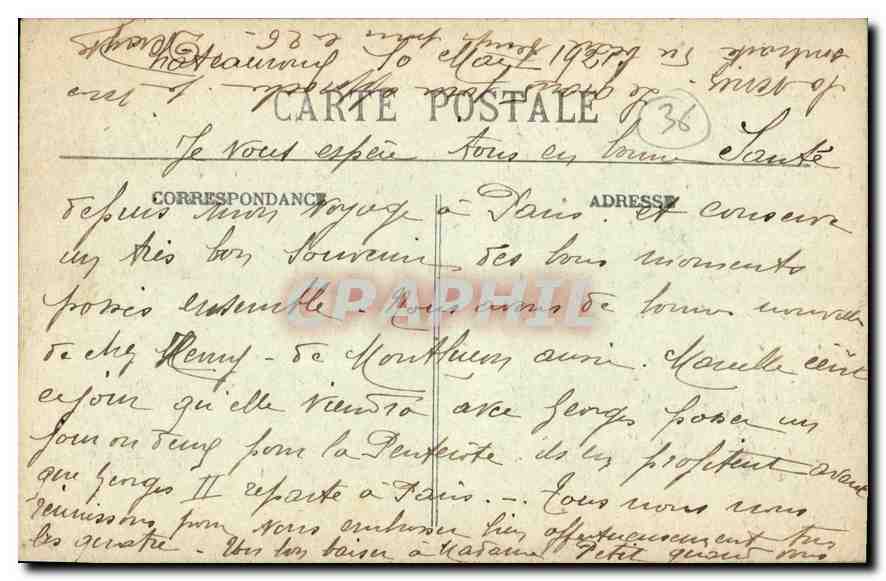 Chateauroux 10 Mai
CARTE POSTALE
36
Je vous espère tous en bonne Santé
CORRESPONDANCE
ADRESSE
depuis mon voyage à Paris. et conserve
un très bon Souvenir des bons moments
passés ensemble. Nous avons de bonnes nouvelles
de chez Henry - de Montluçon aussi. Marcelle écrit
ce jour qu'elle viendra avec Georges passer un
jour ou deux pour la Pentecôte. ils en profitent avant
que Georges II reparte à Paris. -. Tous nous nous
réunissons pour vous embrasser bien affectueusement tous
les quatre - Un bon baiser à Madame Petit quand vous
CPAPHIL